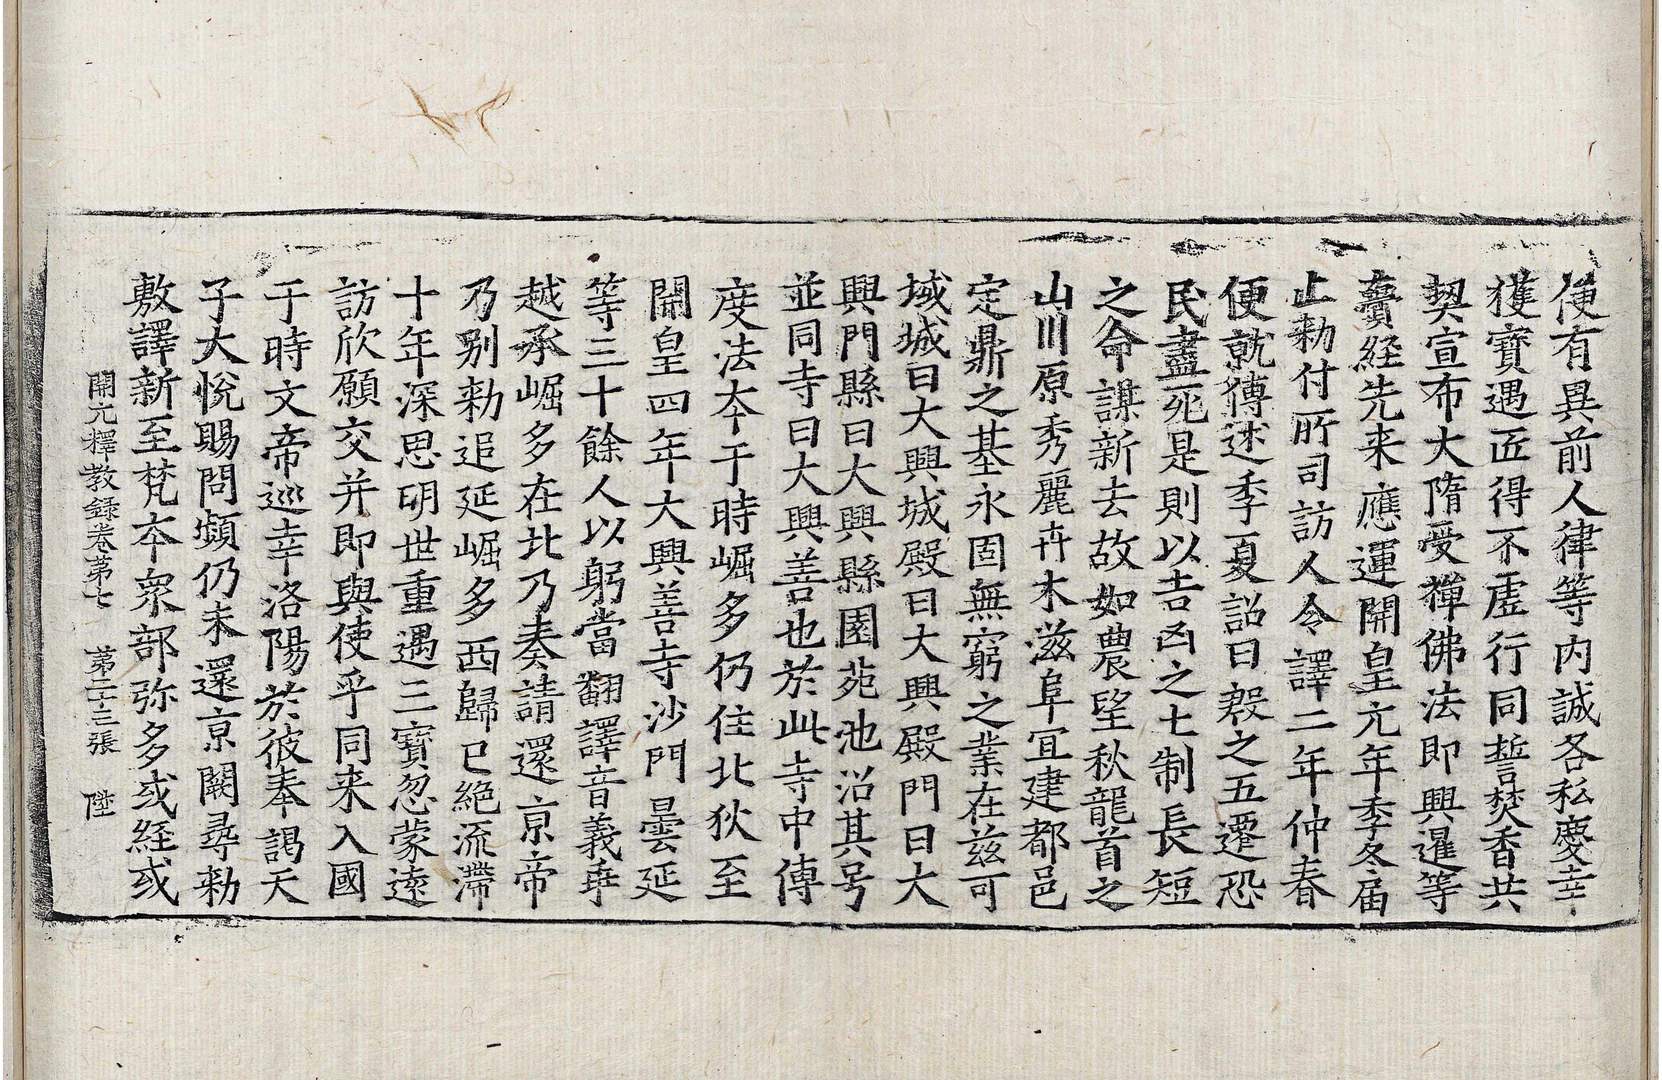 使有異前人律等内誠各私慶幸
獲寶遇匠得不虛行同誓焚香共
契宣布大隋受禪佛法即興暹等
賷經先来應運開皇元年季冬届
止勑付所司訪人令譯二年仲春
便就傳述季夏詔曰殷之五遷恐
民盡死是則以吉凶之土制長短
之命謀新去故如農望秋龍首之
山川原秀麗卉木滋阜宜建都邑
定鼎之基永固無窮之業在兹可
域城曰大興城殿曰大興殿門曰大
興門縣曰大興縣園苑池沼其号
並同寺曰大興善也於此寺中傳
度法夲于時崛多仍住北狄至
開皇四年大興善寺沙門曇延
等三十餘人以躬當翻譯音義乖
越承崛多在北乃奏請還京帝
乃别勑追延崛多西歸已絶流滯
十年深思明世重遇三寶忽蒙遠
訪欣願交并即與使乎同来入國
于時文帝巡幸洛陽於彼奉謁天
子大悅賜問頻仍未還京闕尋勑
敷譯新至梵夲衆部弥多或経或
開元釋教録卷第七 第二十三張 陞